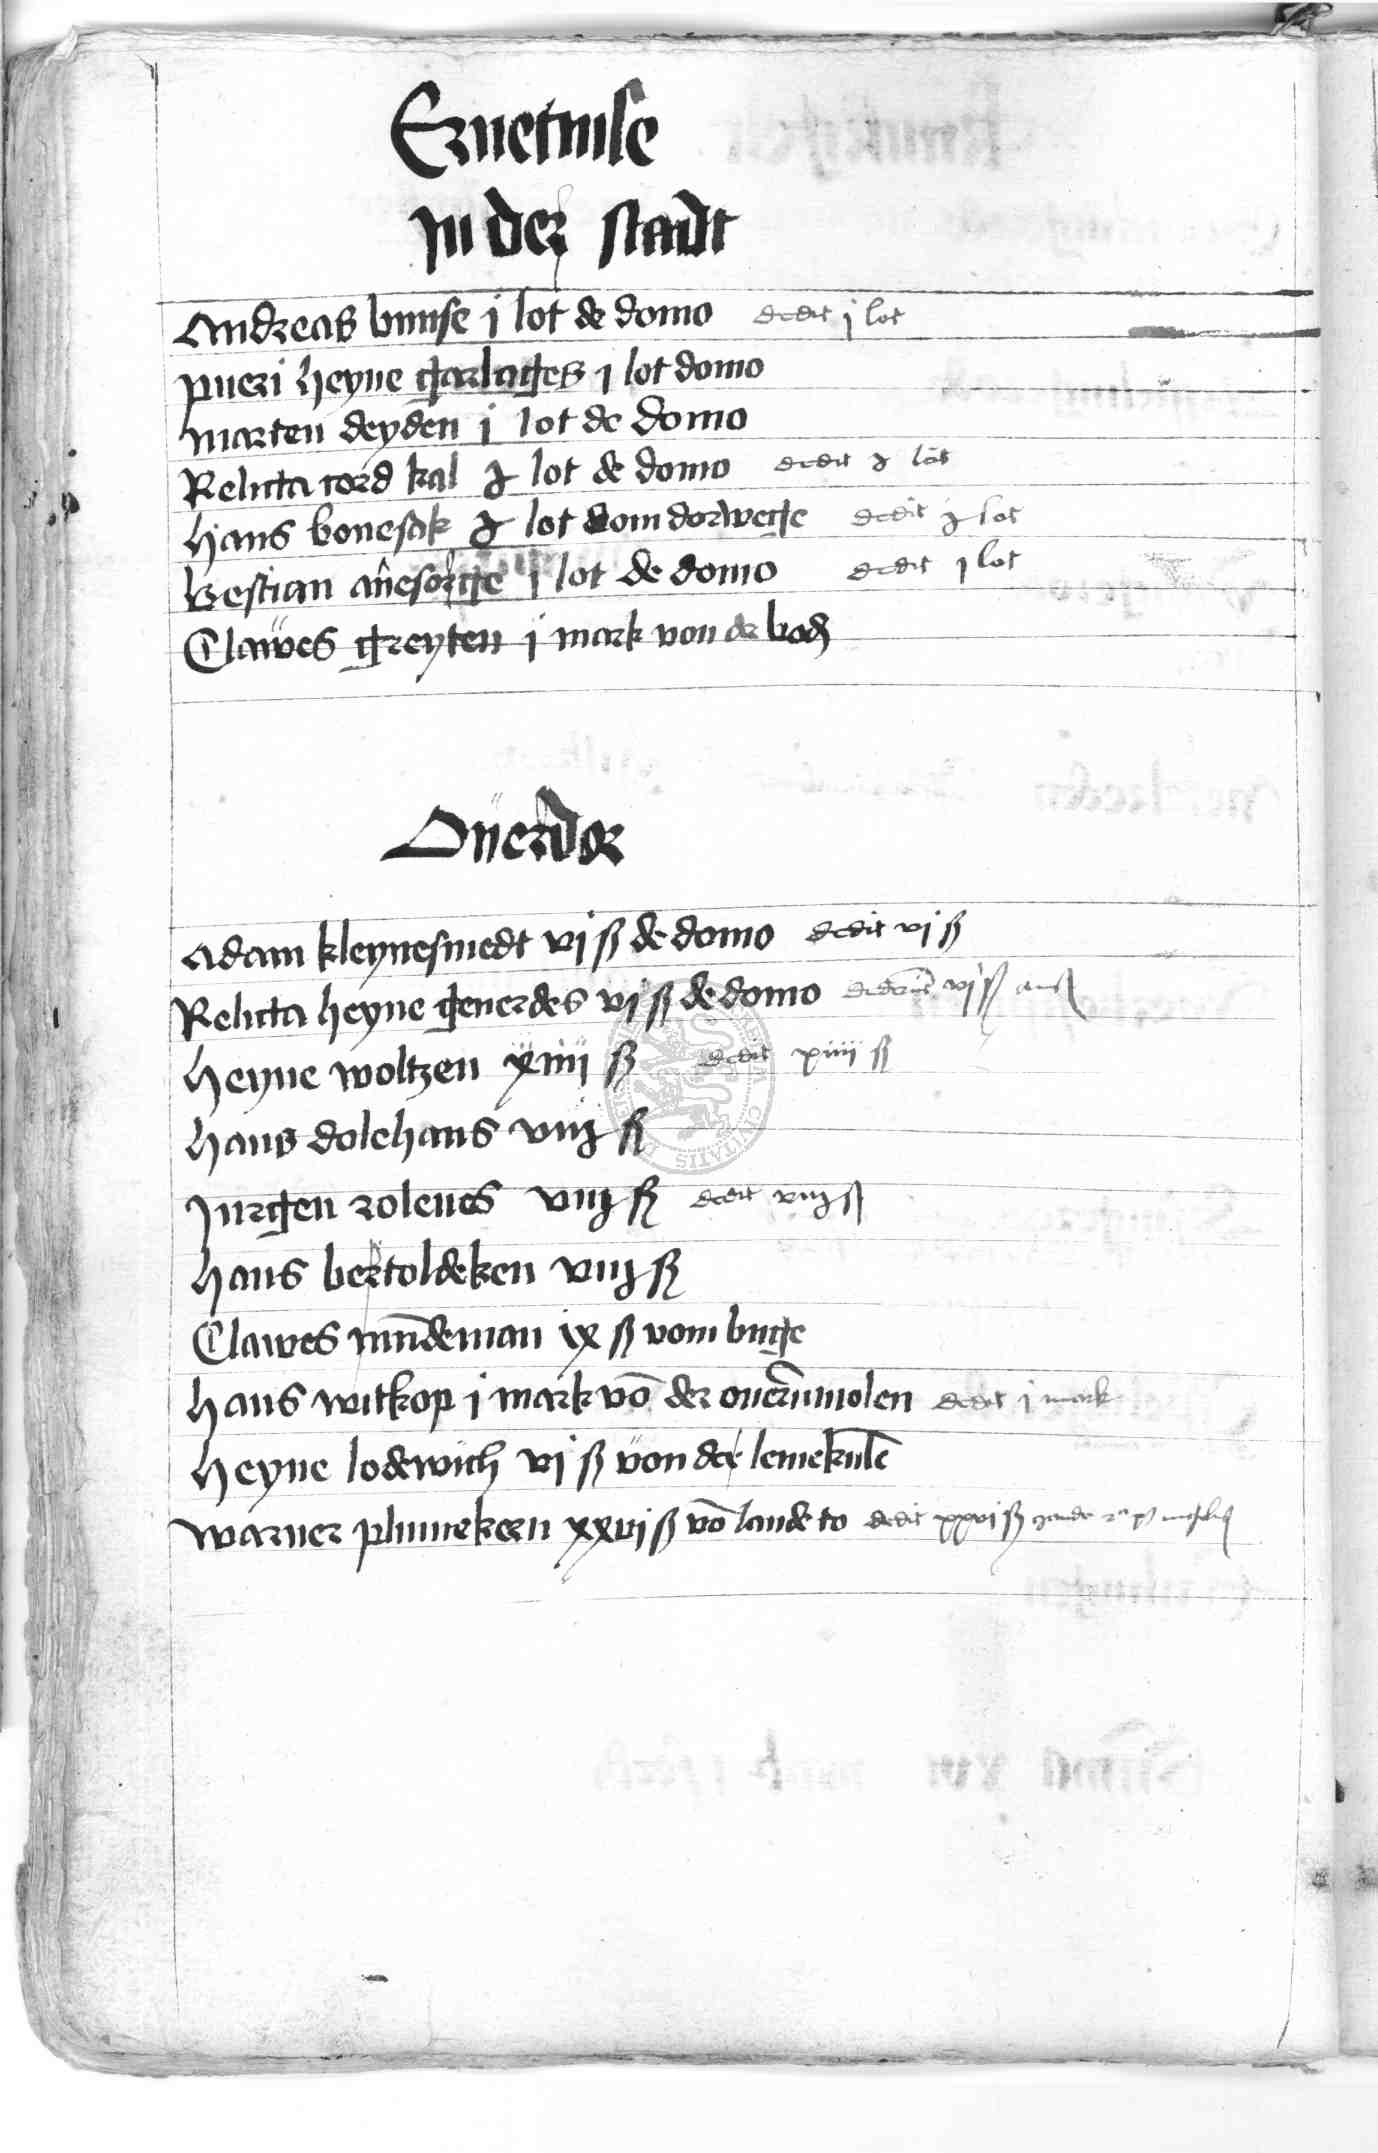 Eruetnise
In der stadt
Andreas bunse j lot de domo dedit j lot
pueri heyne garlages j lot domo
marten deyden j lot de domo
Relicta cord kal lot de domo dedit lot
hans bonesak lot vom dorwege dedit lot
Bestian ānesorge j lot de domo dedit j lot
Clawes greyten j mark von der
Ouerdor
Adam kleynesmedt vj ß de domo dedit vj ß
Relicta heyne geuerdes vj ß de domo vj ß
heyne woltzen xiiij ß dedit xiiij ß
hans dolehans ß
jurgen roleues ß dedit ß
hans bertoldeken ß
Clawes ix ß vom
hans witkop j mark vō der ouerū molen dedit j mark
heyne lodewich vj ß von der lemekule
warner plumekern xxvj ß vō lande to dedit xxvj ß